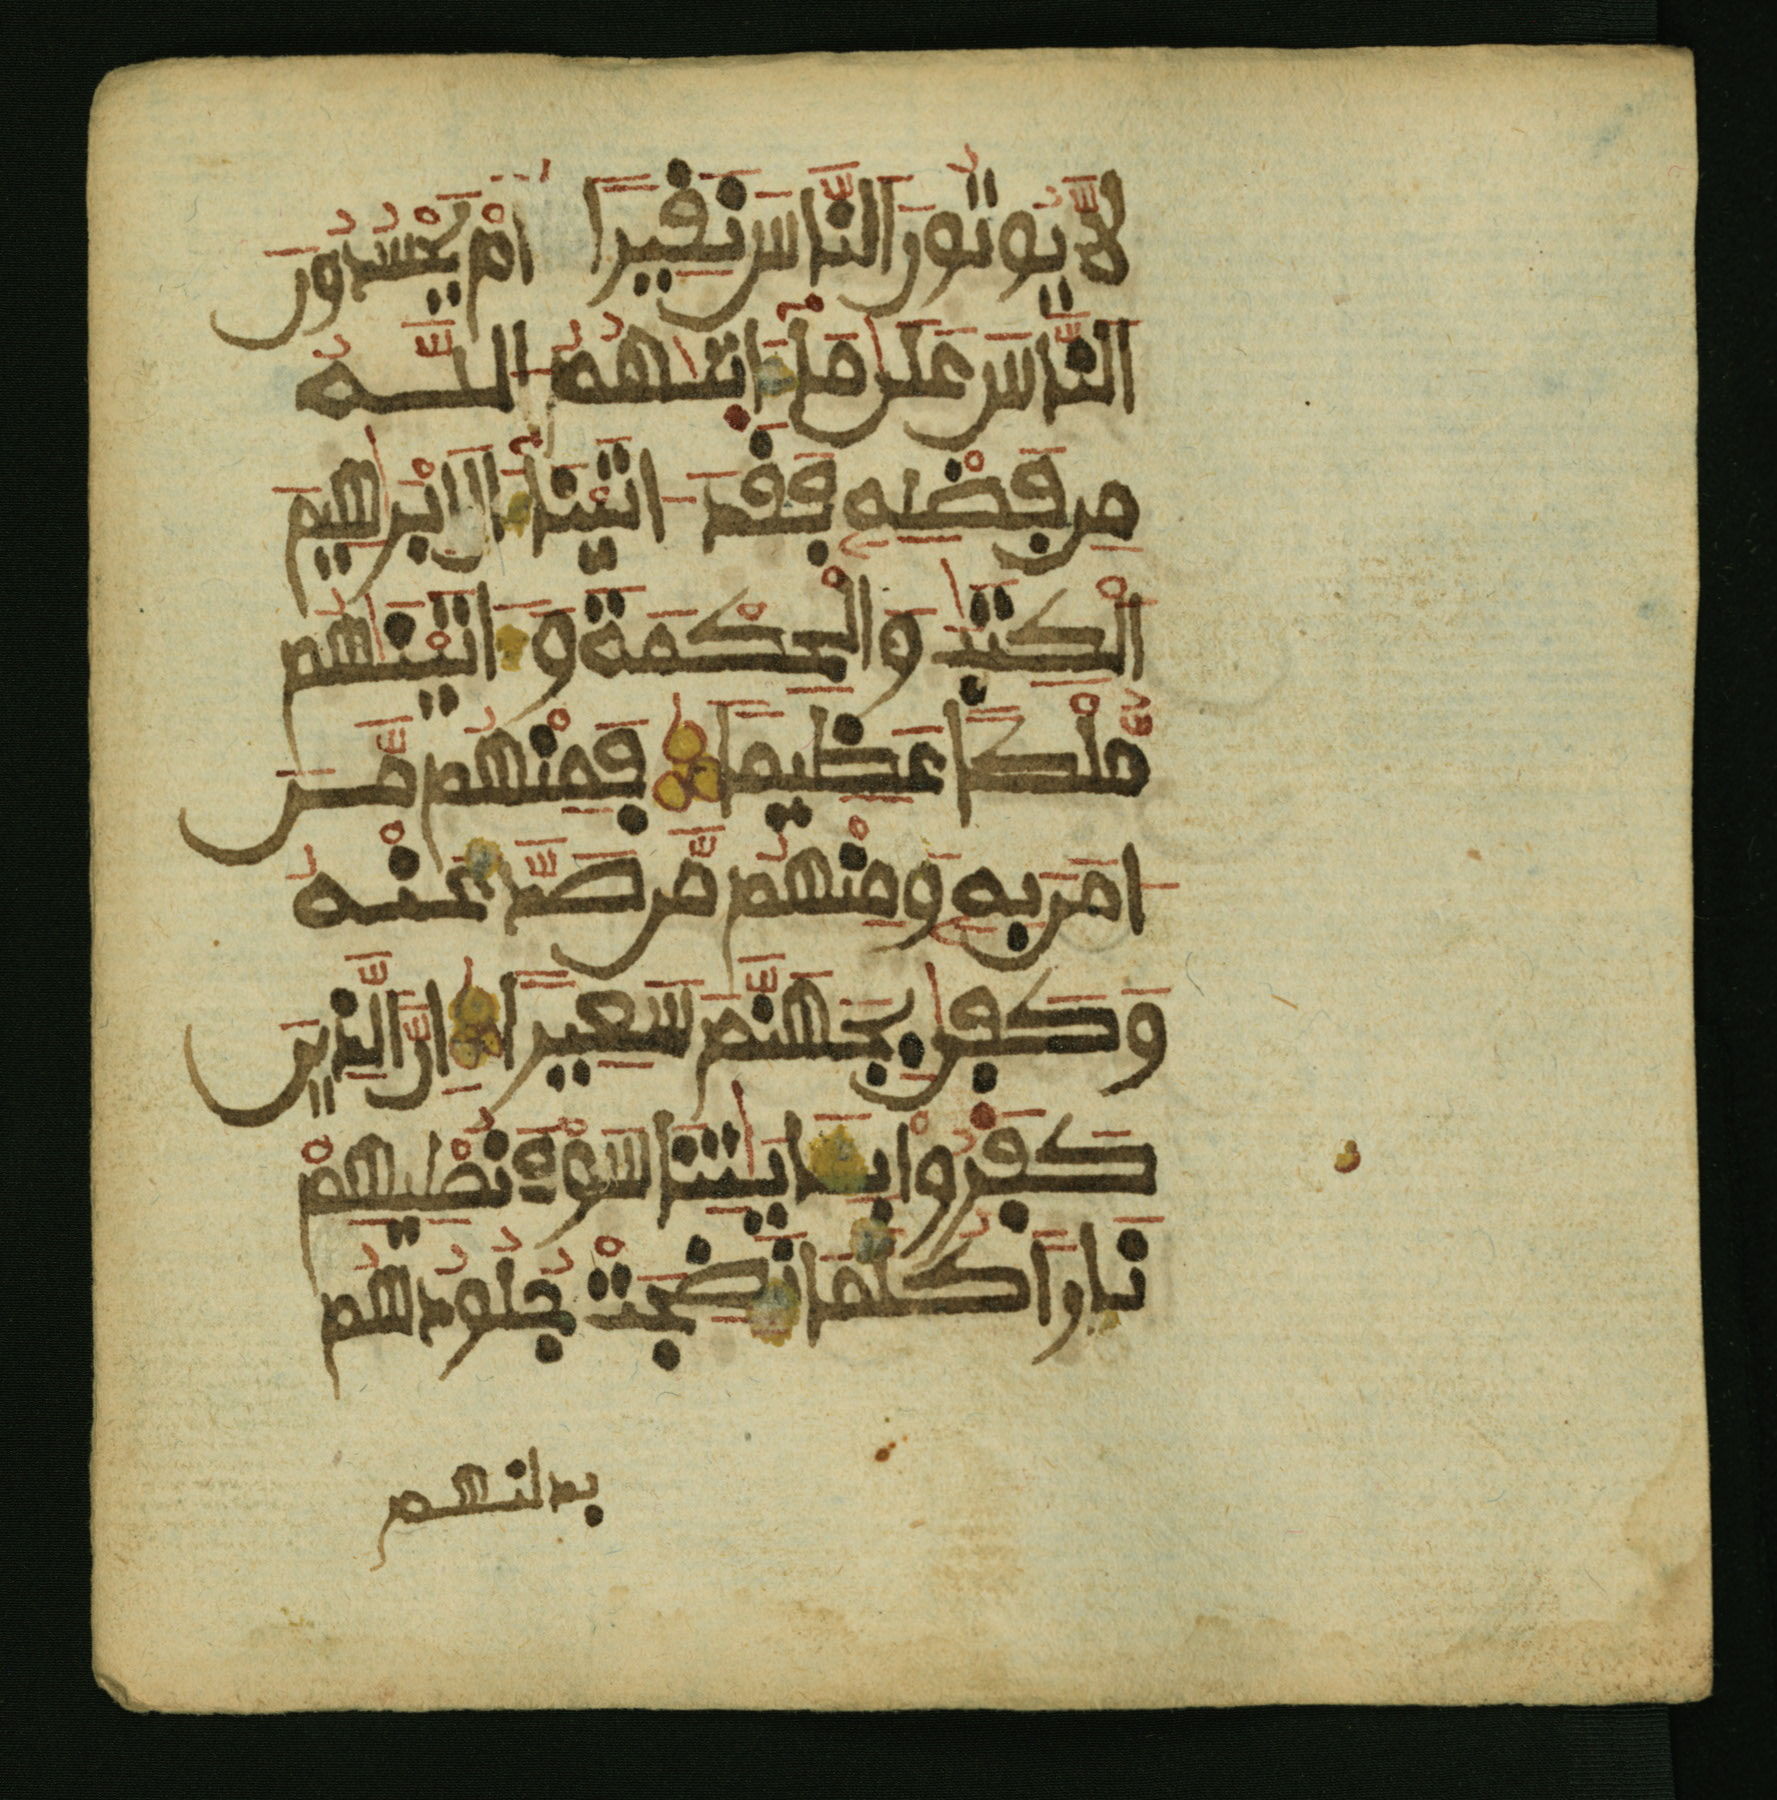 لَّا يُوتُونَ النَّاسَ نَقِيرًا أَمْ يَحْسُدُونَ
النَّاسَ عَلَىٰ مَا ءَاتَىٰهُمُ اللَّهُ
مِن فَضْلِهِ فَقَدَ ـاتَيْنَا ءَالَ إِبْرَٰهِيمَ
الْكِتَٰبَ وَالْحِكْمَةَ وَءَاتَيْنَٰهُم
مُّلْكًا عَظِيمًا فَمِنْهُم مَّنَ
ـامَنَ بِهِ وَمِنْهُم مَّن صَدَّ عَنْهُ
وَكَفَىٰ بِجَهَنَّمَ سَعِيرًا إِنَّ الَّذِينَ
كَفَرُواْ بِـَٔايَٰتِنَا سَوْفَ نُصْلِيهِمْ
نَارًا كُلَّمَا نَضِجَتْ جُلُودُهُم
بدلنهم